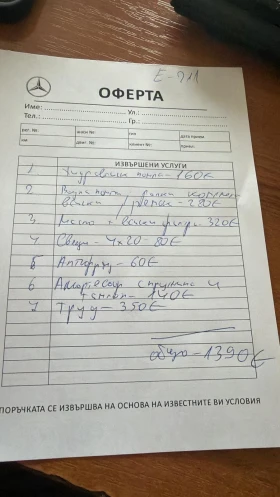 E-211
ОФЕРТА
Име: Ул.:
Тел.: Гр.:
рег. №:
дата приел
клиент №:
приел:
ИЗВЪРШЕНИ УСЛУГИ
1 помпа - 160€
2 Водна помпа, ролки комплект
ремък - 280€
3 Масло и всички филтри 320€
4 Свещи - 4x20 - 80€
5 Антифриз - 60€
6 Амортисьор пружина и
тампон - 140€
7 Труд - 350€
общо - 1390€
ПОРЪЧКАТА СЕ ИЗВЪРШВА НА ОСНОВА НА ИЗВЕСТНИТЕ ВИ УСЛОВИЯ